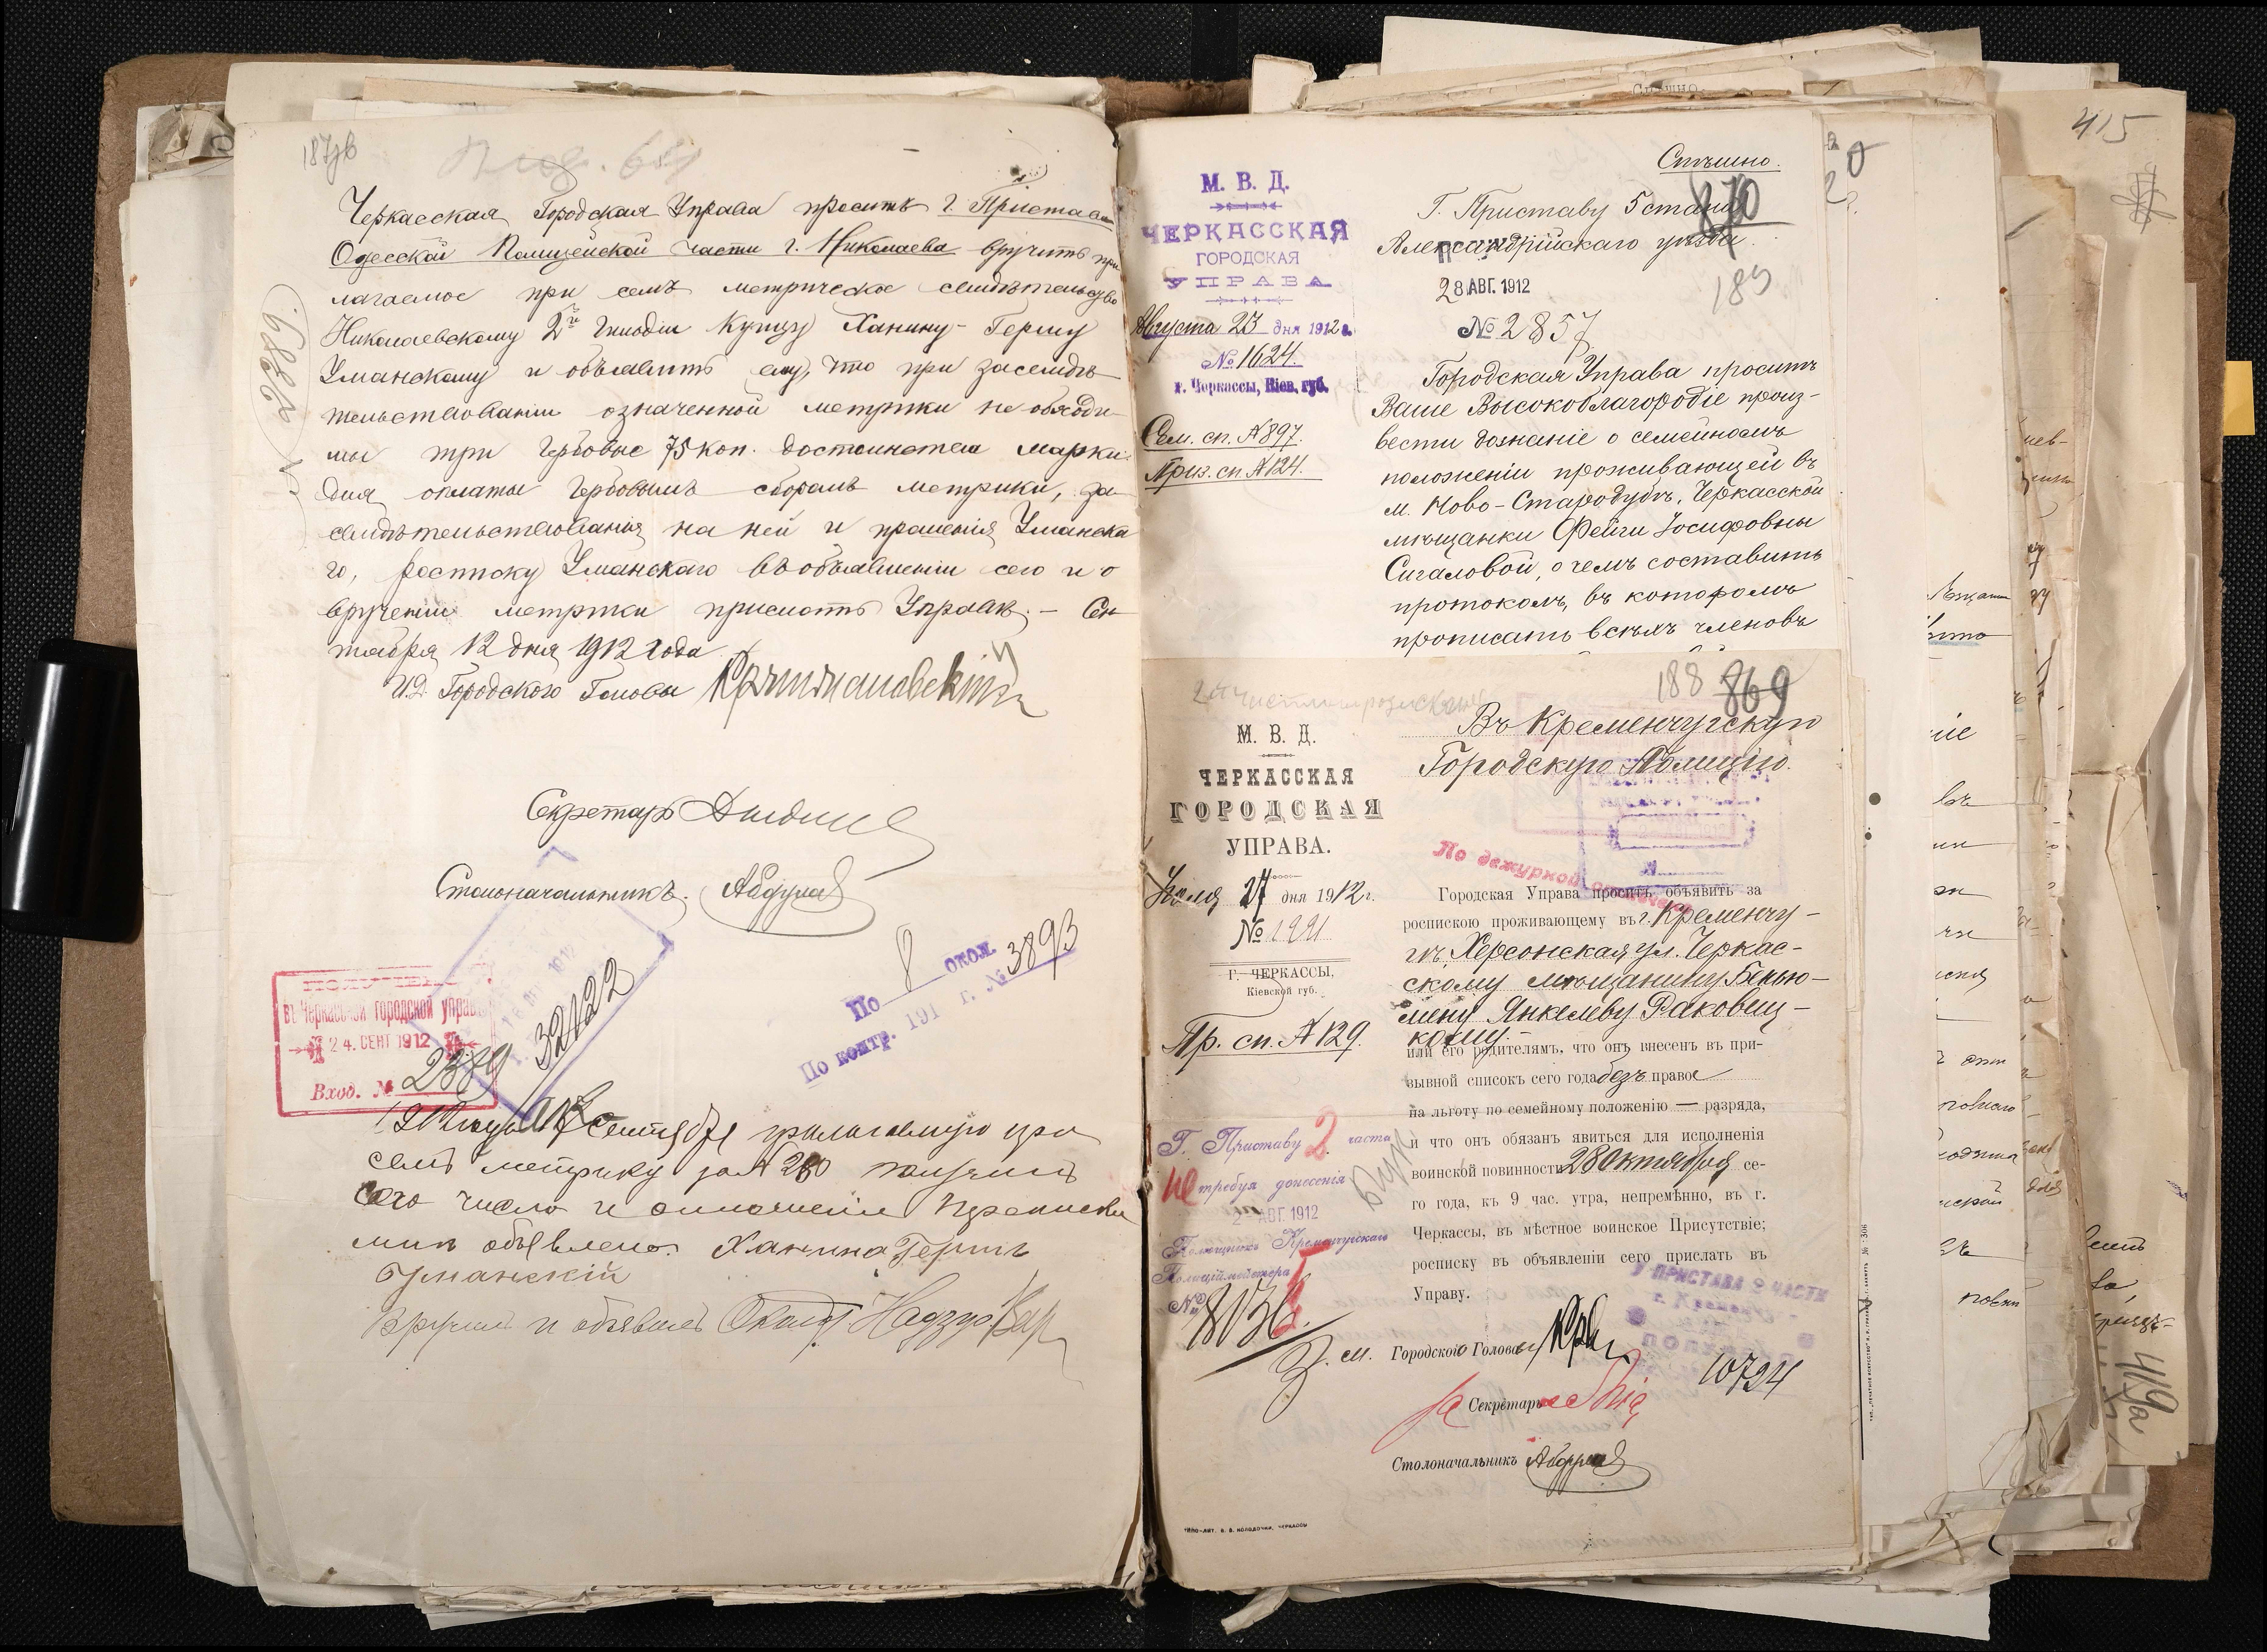 187об
Черкасская Городская Управа проситъ г. Пристава
Одесской Полицейской части г. Николаева вручить при
лагаемое при семъ метрическое свидѣтельство
Николаевскому 2й Гильдіи Купцу Ханину-Гершу
Уманскому и объявить ему, что при засвидѣ
тельствованіи означенной метрики необходи
мы три гербовые 75 коп. достоинства марки
для оплаты гербовымъ сборомъ метрики, за
свидѣтельствованія на ней и прошенія Уманска
го, росписку Уманскаго въ объявленіи сего и о
врученіи метрики прислать Управѣ. — Сен
тября 12 дня 1912 года.
И.Д. Городского Головы
Секретарь
Столоначальникъ.
2389.
По 8 окол.
По контр. 191 г. № 3893
въ Черкасской городской управѣ
24. СЕНТ 1912
Вход. № 2389
32122
1912 года Сентября прилагаемую при
семъ метрику за № 280 получилъ
сего число и отношеніе
мнѣ объявлено. Ханина Гершъ
Уманскій
Вручилъ и объявилъ Окол. Надзир.
Спѣшно.
М. В. Д.
ЧЕРКАССКАЯ
ГОРОДСКАЯ
УПРАВА
Августа 23 дня 1912 г.
№ 1624.
г. Черкассы, Кіев. губ.
Сем. сп. № 897.
Приз. сп. № 124.
870
Г. Приставу 5 стана
Александрійскаго уѣзда.
189
28 АВГ. 1912
№ 2857
Городская Управа проситъ
Ваше Высокоблагородіе произ-
вести дознаніе о семейномъ
положеніи проживающей въ
м. Ново-Стародубѣ, Черкасской
мѣщанки Фейги Іосифовны
Сигаловой, о чемъ составить
протоколъ, въ которомъ
прописать всѣхъ членовъ
188 869
М. В. Д.
ЧЕРКАССКАЯ
ГОРОДСКАЯ
УПРАВА.
Іюля 27 дня 1912 г.
№ 1291
Г. ЧЕРКАССЫ,
Кіевской губ.
Пр. сп. № 129.
Въ Кременчугскую
Городскую Полицію.
По дежурной
Городская Управа проситъ объявить за
роспискою проживающему въ г. Кременчу-
гѣ Херсонская ул. Черкас-
скому мѣщанину Бенью-
мину Янкелеву Раковщ-
кому.
или его родителямъ, что онъ внесенъ въ при-
зывной списокъ сего года безъ права
на льготу по семейному положенію — разряда,
и что онъ обязанъ явиться для исполненія
воинской повинности 28 Октября се-
го года, къ 9 час. утра, непремѣнно, въ г.
Черкассы, въ мѣстное воинское Присутствіе;
росписку въ объявленіи сего прислать въ
Управу.
Г. Приставу 2 части
не требуя донесенія
2 АВГ 1912
Полицмейстера
№ 8136
У ПРИСТАВА 2 ЧАСТИ
г. Кременчу-
10724
З. м. Городского Головы
За Секретаря
Столоначальникъ
ТИПО-ЛИТ. В. В. КОЛОДОЧКИ, ЧЕРКАССЫ
415
419а